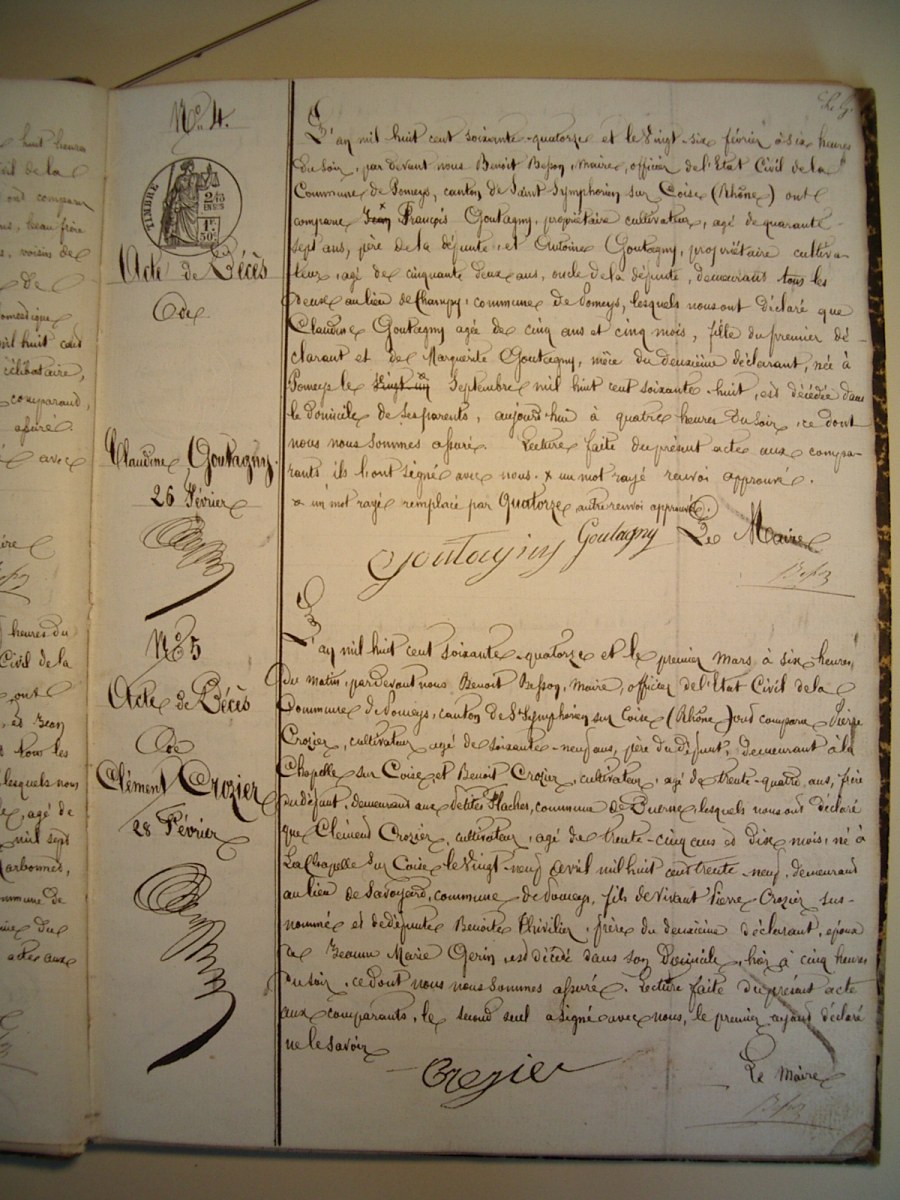 N° 4.
TIMBRE
1F
50c
Acte de Décès
de
Claudine Goutagny.
26 Février
L'an mil huit cent soixante-quatorze et le vingt-six février à six heures
du soir, par devant nous Benoît Besson, Maire, officier de l'Etat Civil de la
Commune de Pomeys, canton de Saint Symphorien sur Coise (Rhône) ont
comparu Jean François Goutagny, propriétaire cultivateur, agé de quarante
sept ans, père de la défunte, et Antoine Goutagny, propriétaire cultiva-
teur, agé de cinquante deux ans, oncle de la défunte, demeurant tous les
deux au lieu de Champy, commune de Pomeys, lesquels nous ont déclaré que
Claudine Goutagny agée de cinq ans et cinq mois, fille du premier dé-
clarant et de Marguerite Goutagny, nièce du deuxième déclarant, née à
Pomeys le Septembre mil huit cent soixante-huit, est décédée dans
le domicile de ses parents, aujourd'hui à quatre heures du soir, ce dont
nous nous sommes assuré. Lecture faite du présent acte aux compa-
rants ils l'ont signé avec nous. x un mot rayé renvoi approuvé.
x un mot rayé remplacé par Quatorze, autre renvoi approuvé.
Le Maire
Goutagny Goutagny
N° 5
Acte de Décès
de
Clément Crozier
28 Février
L'an mil huit cent soixante-quatorze et le premier mars à six heures
du matin, par devant nous Benoît Besson, Maire, officier de l'Etat Civil de la
Commune de Pomeys, canton de St Symphorien sur Coise (Rhône) ont comparu Pierre
Crozier, cultivateur agé de soixante-neuf ans, père du défunt, demeurant à la
Chapelle sur Coise et Benoît Crozier, cultivateur, agé de trente-quatre ans, frère
du défunt, demeurant aux Petites Flaches, commune de Duerne, lesquels nous ont déclaré
que Clément Crozier, cultivateur, agé de trente-cinq ans et dix mois, né à
La Chapelle sur Coise le vingt-neuf avril mil huit cent trente-neuf, demeurant
au lieu de Savoyard, commune de Pomeys, fils de vivant Pierre Crozier sus-
nommé et de défunte Benoîte frère du deuxième déclarant, époux
de Jeanne Marie Gerin, est décédé dans son domicile, hier à cinq heures
du soir, ce dont nous nous sommes assuré. Lecture faite du présent acte
aux comparants, le second seul a signé avec nous, le premier ayant déclaré
ne le savoir
Crozier
Le Maire